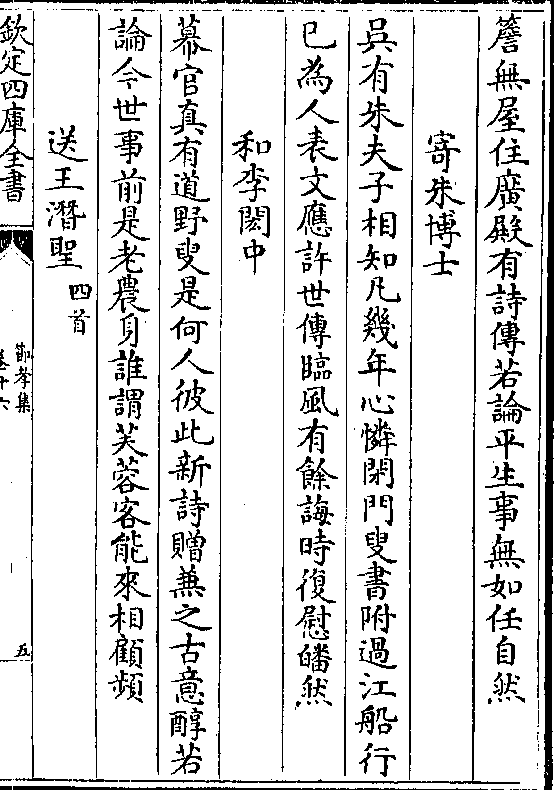 簷無屋住廣殿有詩傳若論平生事無如任自然
寄朱博士
吳有朱夫子相知凡幾年心憐閉門叟書附過江船行
已為人表文應許世傳臨風有餘誨時復慰皤然
和李閎中
幕官真有道野叟是何人彼此新詩贈兼之古意醇若
論今世事前是老農身誰謂芙蓉客能來相顧頻
送王潛聖 四首
欽定四庫全書
節孝集
卷十六
五